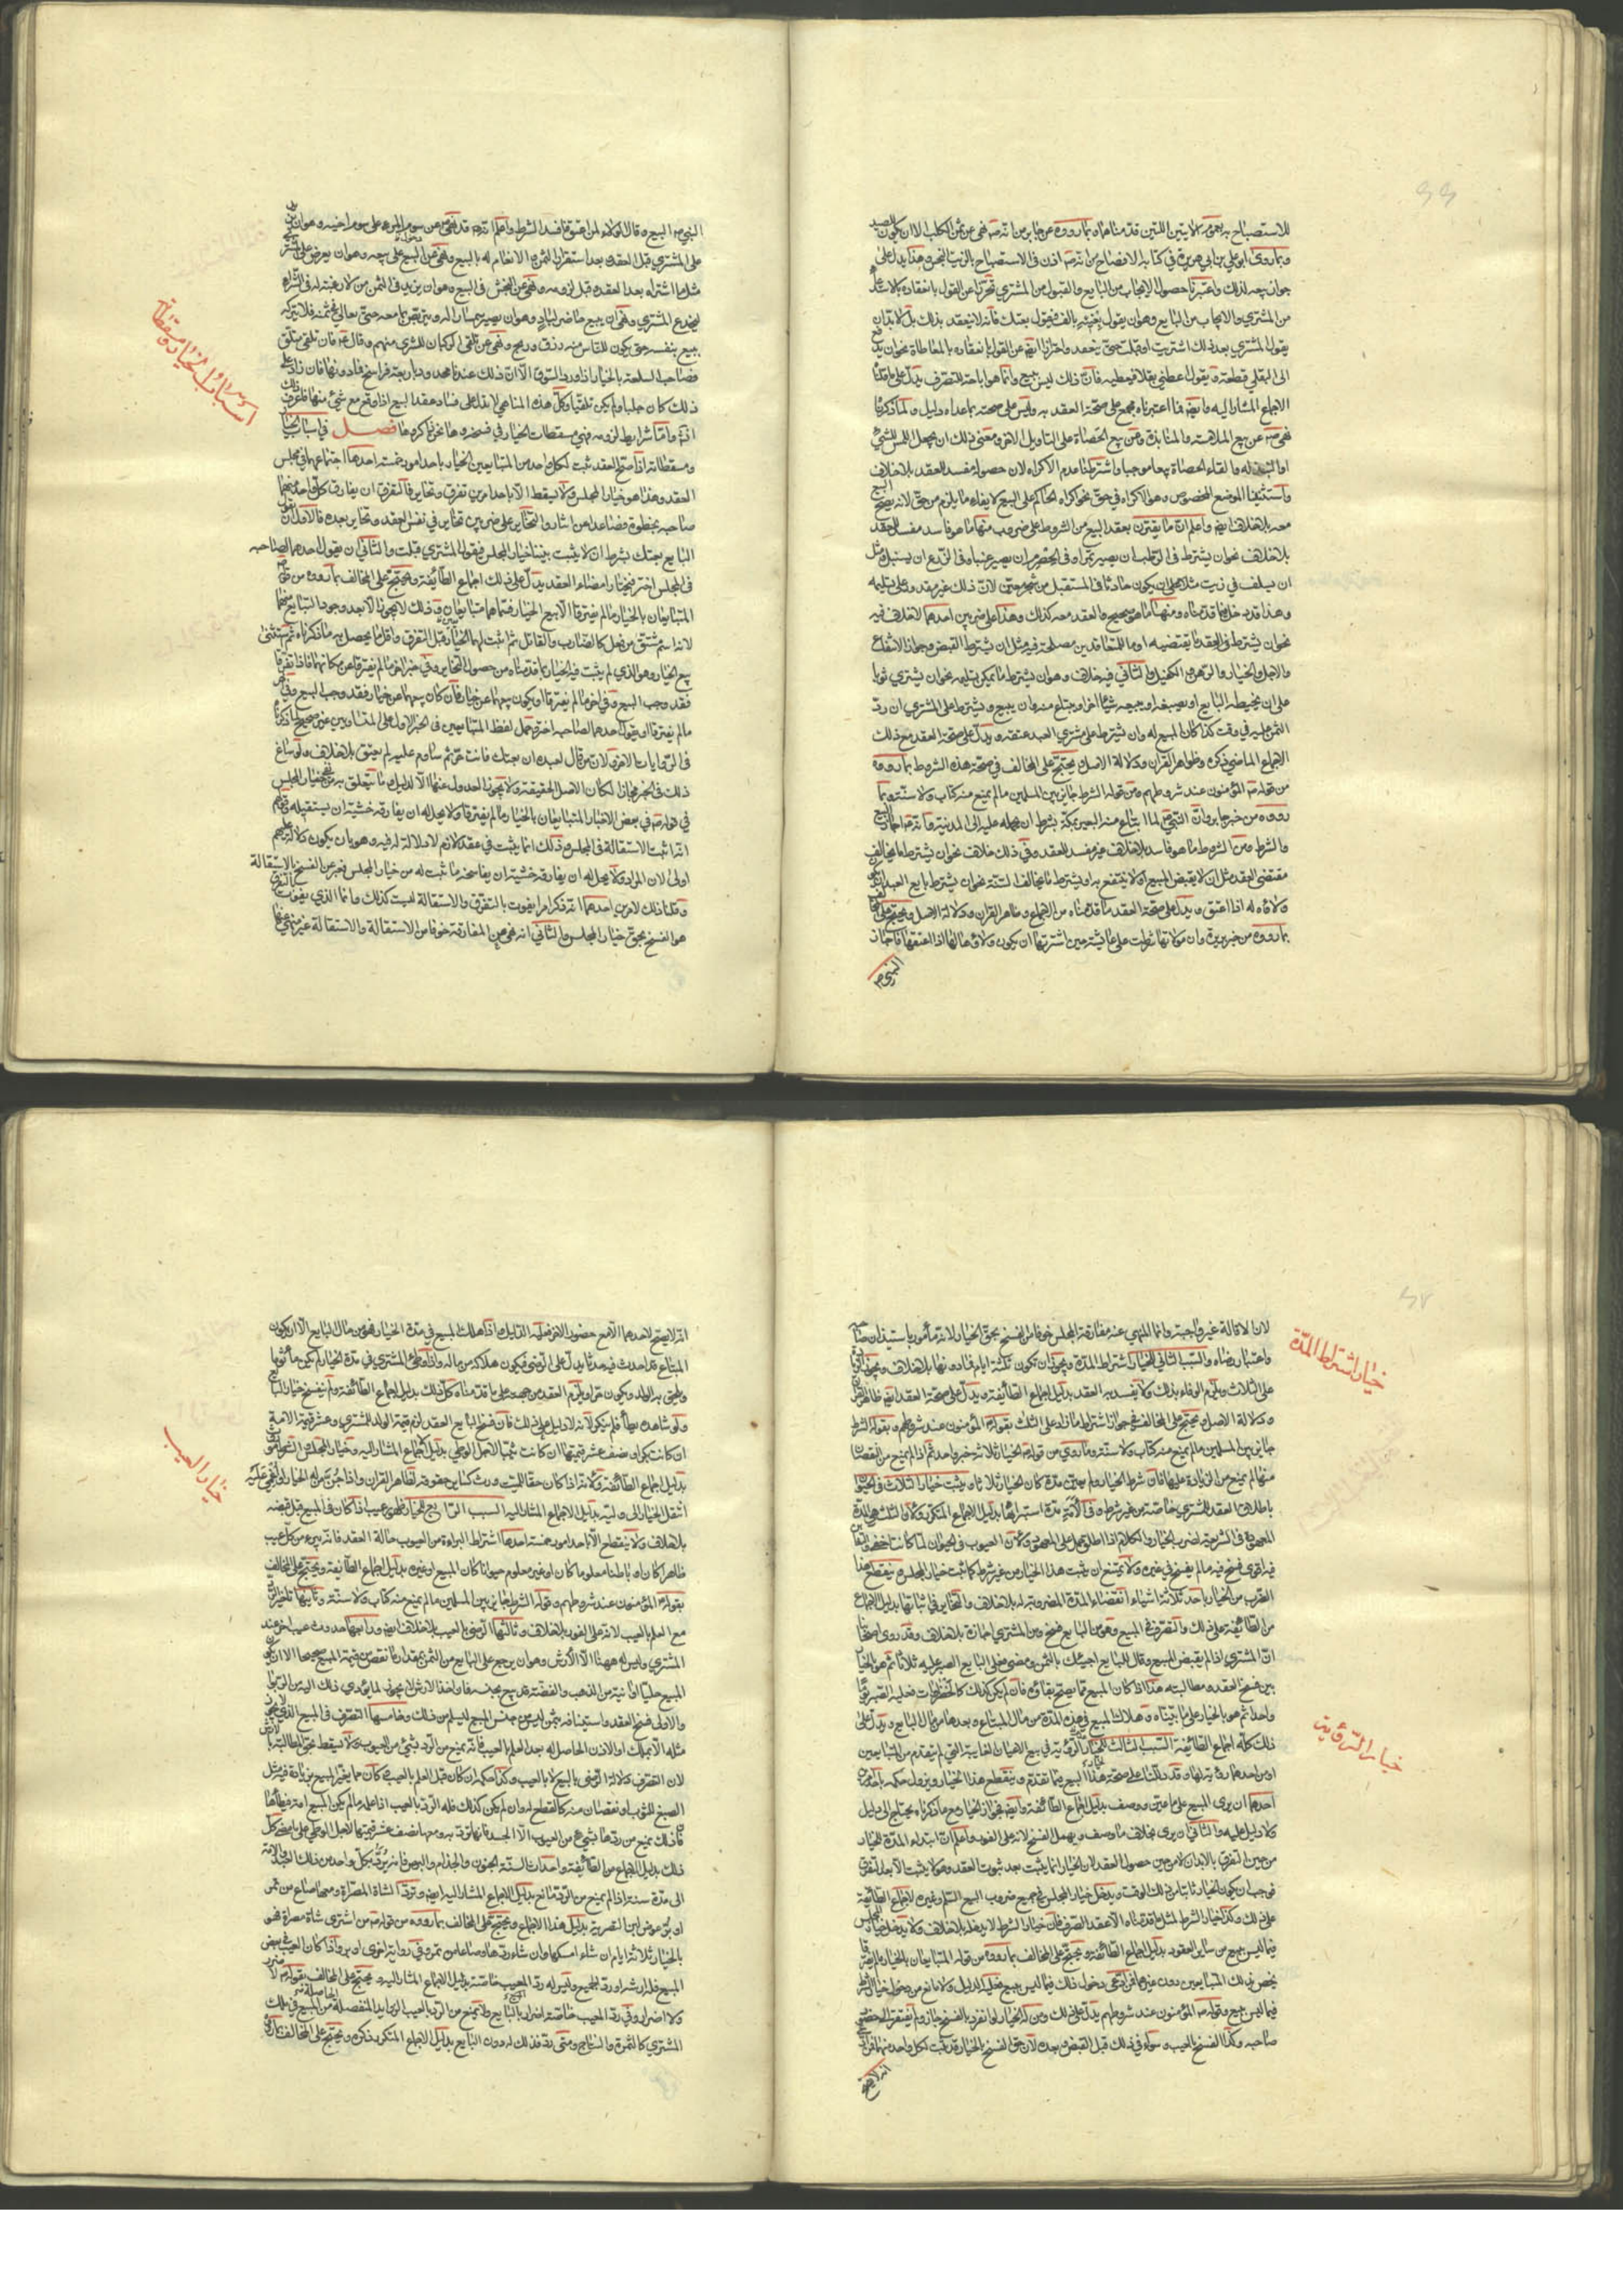 للاستصباح به لعموم الآيتين اللتين قدمناهما وبما رووه عن جابر من انه ص نهى عن ثمن الكلب الا ان يكون للصيد
وبما روى ابو علي بن ابي هريرة في كتابه الافصاح من انه ص اذن في الاستصباح بالزيت النجس وهذا يدل على
جواز بيعه لذلك واعتبرنا حصول الايجاب من البايع والقبول من المشتري تحرزا عن القول بانعقاده بالاستدعاء
من المشتري والايجاب من البايع وهو ان يقول بعنيه بالف فيقول بعتك فانه لا ينعقد بذلك بل لا بد ان
يقول المشتري بعد ذلك اشتريت او قبلت حتى ينعقد واحترازا ايضا عن القول بانعقاده بالمعاطاة نحو ان يدفع
الى البقلي قطعة ويقول اعطني بقلا فيعطيه فان ذلك ليس ببيع وانما هو اباحة للتصرف يدل على ما قلناه
الاجماع المشار اليه وايضا فما اعتبرناه مجمع على صحة العقد به وليس على صحته بما عداه دليل ولما ذكرنا
نهى ص عن بيع الملامسة والمنابذة وعن بيع الحصاة على التاويل الاخر ومعنى ذلك ان يجعل اللمس للشيء
او النبذ له والقاء الحصاة بيعا موجبا واشترطنا عدم الاكراه لان حصوله مفسد للعقد بلا خلاف
واستثنينا الموضع المخصوص وهو الاكراه في حق نحو اكراه الحاكم على البيع لايفاء ما يلزم من حق لانه يصح البيع
معه بلا خلاف ايضا واعلم ان ما يقترن بعقد البيع من الشروط على ضروب منها ما هو فاسد مفسد للعقد
بلا خلاف نحو ان يشترط في الرطب ان يصير تمرا وفي الحصرم ان يصير عنبا وفي الزرع ان يسنبل ومثل
ان يسلف في زيت مثلا على ان يكون حادثا في المستقبل من شجر معين لان ذلك غير مقدور على تسليمه
وهذا قد دخل فيما قدمناه ومنها ما هو صحيح والعقد معه كذلك وهذا على ضربين احدهما لا خلاف فيه
نحو ان يشترط في العقد ما يقتضيه او ما للمتعاقدين مصلحة فيه مثل ان يشترط القبض وجواز الانتفاع
والاجل والخيار والرهن والكفيل والثاني فيه خلاف وهو ان يشترط ما يمكن تسليمه نحو ان يشتري ثوبا
على ان يخيطه البايع او يصبغه او يبيعه شيئا اخر او يبتاع منه وان يبيع ويشترط على المشتري ان رد
الثمن عليه في وقت كذا كان المبيع له وان يشترط على مشتري العبد عتقه ويدل على صحة العقد مع ذلك
الاجماع الماضي ذكره وظواهر القرآن ودلالة الاصل يحتج على المخالف في صحة هذه الشروط بما رووه
من قوله ص المؤمنون عند شروطهم ومن قوله الشرط جايز بين المسلمين ما لم يمنع منه كتاب ولا سنة وبما
رووه من خبر جابر وان النبي ص لما ابتاع منه البعير بمكة بشرط ان يحمله عليه الى المدينة وانه ص اجاز البيع
والشرط ومن الشروط ما هو فاسد بلا خلاف غير مفسد للعقد وفي ذلك خلاف نحو ان يشترط ما يخالف
مقتضى العقد مثل ان لا يقبض المبيع او لا ينتفع به او يشترط ما يخالف السنة نحو ان يشترط بايع العبد ان يكون
ولاؤه له اذا اعتق ويدل على صحة العقد ما قدمناه من الاجماع وظاهر القرآن ودلالة الاصل ويحتج على المخالف
بما رووه من خبر بريرة وان مولاتها شرطت على عايشة حين اشترتها ان يكون ولاؤها لها اذا اعتقتها فاجاز
النبي ص
النبي ص البيع وقال الولاء لمن اعتق فافسد الشرط واعلم انه ص قد نهى عن سوم المرء على سوم اخيه وهو ان يزيد
على المشتري قبل العقد وبعد استقرار الثمن والانعام له بالبيع ونهى عن البيع على بيعه وهو ان يعرض على المشتري
مثل ما اشتراه بعد العقد وقبل لزومه ونهى عن النجش في البيع وهو ان يزيد في الثمن من لا رغبة له في الشراء
ليخدع المشتري ونهى ان يبيع حاضر لباد وهو ان يصير سمسارا له ويتربص بما معه حتى يغالي في ثمنه فلا يتركه
يبيع بنفسه حتى يكون للناس منه رزق وربح ونهى عن تلقي الركبان للشرى منهم وقال ع فان تلقى متلق
فصاحب السلعة بالخيار اذا ورد السوق الا ان ذلك عندنا محدود باربعة فراسخ فما دونها فان زاد على
ذلك كان جلبا ولم يكن تلقيا وكل هذه المناهي لا تدل على فساد عقد البيع اذا وقع مع شيء منها فاعرف ذلك
اذن واما شرايط لزومه فهي مسقطات الخيار في فسخه وها نحن ذاكروها فصل في اسباب الخيار
ومسقطاته اذا صح العقد ثبت لكل واحد من المتبايعين الخيار باحد امور خمسة احدها اجتماعهما في مجلس
العقد وهذا هو خيار المجلس ولا يسقط الا باحد امرين تفرق وتخاير فالتفرق ان يفارق كل واحد منهما
صاحبه بخطوة فصاعدا عن ايثار والتخاير على ضربين تخاير في نفس العقد وتخاير بعده فالاول ان يقول
البايع بعتك بشرط ان لا يثبت بيننا خيار المجلس فيقول المشتري قبلت والثاني ان يقول احدهما لصاحبه
في المجلس اختر فيختار امضاء العقد يدل على ذلك اجماع الطائفة ويحتج على المخالف بما رووه من قوله
المتبايعان بالخيار ما لم يفترقا الا بيع الخيار فسماهما متبايعين وذلك لا يجوز الا بعد وجود التبايع منهما
لانه اسم مشتق من فعل كالضارب والقاتل ثم اثبت لهما الخيار قبل التفرق واقل ما يحصل به ما ذكرناه ثم استثنى
بيع الخيار وهو الذي لم يثبت فيه الخيار بما قدمناه من حصول التخاير وفي خبر اخر ما لم يفترقا عن مكانهما فاذا تفرقا
فقد وجب البيع وفي اخر ما لم يفترقا او يكون بيعهما عن خيار فان كان بيعهما عن خيار فقد وجب البيع وفي اخر
ما لم يفترقا او يقول احدهما لصاحبه اختر وحمل لفظ المتبايعين في الخبر الاول على المتساومين غير صحيح لما ذكرناه
في الروايات الاخر ولان من قال لعبده ان بعتك فانت حر ثم ساوم عليه لم يعتق بلا خلاف ولو ساغ
ذلك في الخبر مجازا لكان الاصل الحقيقة ولا يجوز العدول عنها الا لدليل وما يتعلق به نفي خيار المجلس
في قوله ص في بعض الاخبار المتبايعان بالخيار ما لم يفترقا ولا يحل له ان يفارقه خشية ان يستقيله وقولهم
انه اثبت الاستقالة في المجلس وذلك انما يثبت في عقد لازم لا دلالة لهم فيه وهو بان يكون دلالة عليهم
اولى لان المراد ولا يحل له ان يفارقه خشية ان يفاسخه ما ثبت له من خيار المجلس فعبر عن الفسخ بالاستقالة
وقلنا ذلك لامرين احدهما انه ذكر امرا يفوت بالتفرق والاستقالة ليست كذلك وانما الذي يفوت بالتفرق
هو الفسخ بحق خيار المجلس والثاني انه نهى عن المفارقة خوفا من الاستقالة والاستقالة غير منهي عنها
اسباب الخيار ومسقطاته
لان الاقالة غير واجبة وانما النهي عنه مفارقة المجلس خوفا من الفسخ بحق الخيار لانه مأمور باستيذان صاحبه
واعتبار رضاه والسبب الثاني للخيار اشتراط المدة ويجوز ان تكون ثلثة ايام فما دونها بلا خلاف ويجوز الزيادة
على الثلاث ويلزم الوفاء بذلك ولا يفسد به العقد بدليل اجماع الطائفة ويدل على صحة العقد ايضا ظاهر القرآن
ودلالة الاصل ويحتج على المخالف في جواز اشتراط ما زاد على الثلث بقوله ع المؤمنون عند شروطهم وبقوله الشرط
جايز بين المسلمين ما لم يمنع منه كتاب ولا سنة وما روي من قوله ص الخيار ثلاثة خبر واحد ثم اذا لم يمنع من النقصان
منها لم يمنع من الزيادة عليها فان شرط الخيار ولم يعين مدة كان الخيار ثلاثا ويثبت خيار الثلاث في الحيوان
باطلاق العقد للمشتري خاصة من غير شرط وفي الامة مدة استبرائها بدليل الاجماع المتكرر ولان الثلث هي المدة
المعهودة في الشريعة لضرب الخيار والكلام اذا اطلق حمل على المعهود ولان العيوب في الحيوان لما كانت اخفى والتغابن
فيه اقوى فسخ فيه ما لم يفسخ في غيره ولا يمتنع ان يثبت هذا الخيار من غير شرط كما ثبت خيار المجلس وينقطع هذا
الضرب من الخيار باحد ثلاثة اشياء انقضاء المدة المضروبة له بلا خلاف والتخاير في اثنائها بدليل اجماع
من الطائفة على ذلك والتصرف في المبيع وهو من البايع فسخ ومن المشتري اجازة بلا خلاف وقد روى اصحابنا
ان المشتري اذا لم يقبض المبيع وقال للبايع اجيئك بالثمن ومضى فعلى البايع الصبر عليه ثلاثا ثم هو بالخيار
بين فسخ العقد ومطالبته هذا اذا كان المبيع مما يصح بقاؤه فان لم يكن كذلك كالخضراوات فعليه الصبر يوما
واحدا ثم هو بالخيار على ما بيناه وهلاك المبيع في هذه المدة من مال المبتاع وبعدها من مال البايع ويدل على
ذلك كله اجماع الطائفة السبب الثالث للخيار الرؤية في بيع الاعيان الغايبة التي لم يتقدم من المتبايعين
او من احدهما رؤية لها وقد دللنا على صحة هذا البيع فيما تقدم وينقطع هذا الخيار ويزول حكمه باحد امرين
احدهما ان يرى المبيع على ما عين ووصف بدليل اجماع الطائفة وايضا فجواز الخيار مع ما ذكرناه يحتاج الى دليل
ولا دليل عليه والثاني ان يرى بخلاف ما وصف ويهمل الفسخ لانه على الفور واعلم ان ابتداء المدة للخيار
من حين التفرق بالابدان لا من حين حصول العقد لان الخيار انما يثبت بعد ثبوت العقد وهو لا يثبت الا بعد التفرق
فوجب ان يكون الخيار ثابتا من ذلك الوقت ويدخل خيار المجلس في جميع ضروب البيع السلم وغيره لاجماع الطائفة
على ذلك وكذا خيار الشرط لمثل ما قدمناه الا عقد الصرف فان خيار الشرط لا يدخله بلا خلاف ولا يدخل خيار المجلس
فيما ليس ببيع من ساير العقود بدليل اجماع الطائفة ويحتج على المخالف بما رووه من قوله المتبايعان بالخيار ما لم يفترقا
يخص بذلك المتبايعين دون غيرهما فمن ادعى دخول ذلك فيما ليس ببيع فعليه الدليل ولا مانع من دخول خيار الشرط
فيما ليس ببيع وقوله ص المؤمنون عند شروطهم يدل على ذلك ومن له الخيار له انفراد بالفسخ جايز ولم يفتقر الى حضور
صاحبه وكذا الفسخ بالعيب وسواء في ذلك قبل القبض وبعده لان حق الفسخ بالخيار قد ثبت لكل واحد منهما فمن ادعى
انه لا يصح
خيار اشتراط المدة
خيار الرؤية
انه لا يصح لاحدهما الا مع حضور الاخر فعليه الدليل واذا هلك المبيع في مدة الخيار فهو من مال البايع الا ان يكون
المبتاع قد احدث فيه حدثا يدل على الرضى فيكون هلاكه من ماله واذا وطئ المشتري في مدة الخيار لم يكن مأثوما
ويلحق به الولد ويكون حرا ويلزم العقد من جهته على ما قدمناه كل ذلك بدليل اجماع الطائفة ولم ينفسخ خيار البايع
ولو شاهده يطأ فلم ينكر لانه لا دليل على ذلك فان فسخ البايع العقد لزم قيمة الولد للمشتري وعشر قيمة الامة
ان كانت بكرا ونصف عشر قيمتها ان كانت ثيبا لاجل الوطي بدليل الاجماع المشار اليه وخيار المجلس والشرط موروث
بدليل اجماع الطائفة ولانه اذا كان حقا للميت ورث كساير حقوقه لظاهر القرآن واذا جن من له الخيار او اغمي عليه
انتقل الخيار الى وليه بدليل الاجماع المشار اليه السبب الرابع للخيار ظهور عيب اذا كان في المبيع قبل قبضه
بلا خلاف ولا ينقطع الا باحد امور خمسة احدها اشتراط البراءة من العيوب حالة العقد فانه يبرء من كل عيب
ظاهرا كان او باطنا معلوما كان او غير معلوم حيوانا كان المبيع او غيره بدليل اجماع الطائفة ويحتج على المخالف
بقوله ع المؤمنون عند شروطهم وقوله الشرط جايز بين المسلمين ما لم يمنع منه كتاب ولا سنة وثانيها تاخير الرد
مع العلم بالعيب لانه على الفور بلا خلاف وثالثها الرضى بالعيب بلا خلاف ايضا ورابعها حدوث عيب اخر عند
المشتري وليس له ههنا الا الارش وهو ان يرجع على البايع من الثمن بمقدار ما نقص من قيمة المبيع صحيحا الا ان يكون
المبيع حليا او آنية من الذهب والفضة قد بيع بجنسه فاخذ الارش لا يجوز لما يؤدي ذلك اليه من الربا
والاولى فسخ العقد واستينافه بثمن ليس من جنس المبيع ليسلم من ذلك وخامسها التصرف في المبيع الذي لا يجوز
مثله الا بملك او الاذن الحاصل له بعد العلم بالعيب فانه يمنع من الرد بشيء من العيوب ولا يسقط حق المطالبة بالارش
لان التصرف دلالة الرضى بالبيع لا بالعيب وكذا حكمه ان كان قبل العلم بالعيب وكان مما يغير المبيع بزيادة فيه مثل
الصبغ للثوب او نقصان منه كالقطع له وان لم يكن كذلك فله الرد بالعيب اذا علمه ما لم يكن المبيع امة فيطأها
فان ذلك يمنع من ردها بشيء من العيوب الا الحبل فانها ترد به ومعها نصف عشر قيمتها لاجل الوطي على ما مضى كل
ذلك بدليل الاجماع من الطائفة واحداث السنة الجنون والجذام والبرص فانه يرد بكل واحد من ذلك العبد والامة
الى مدة سنة اذا لم يمنع من الرد مانع بدليل الاجماع المشار اليه ايضا وترد الشاة المصراة ومعها صاع من تمر
او بر عوض لبن التصرية بدليل هذا الاجماع ويحتج على المخالف بما رووه من قوله ص من اشترى شاة مصراة فهو
بالخيار ثلاثة ايام ان شاء امسكها وان شاء ردها وصاعا من تمر وفي رواية اخرى او بر واذا كان العيب في بعض
المبيع فله ارشه او رد الجميع وليس له رد المعيب خاصة بدليل الاجماع المشار اليه ويحتج على المخالف بقوله لا ضرر
ولا اضرار وفي رد المعيب خاصة اضرار بالبايع ولا يمنع من الرد بالعيب الزيادة المنفصلة الحاصلة من المبيع في ملك
المشتري كالثمرة والنتاج ومتى رد فذلك له دون البايع بدليل الاجماع المتكرر ذكره ويحتج على المخالف بما رووه
خيار العيب